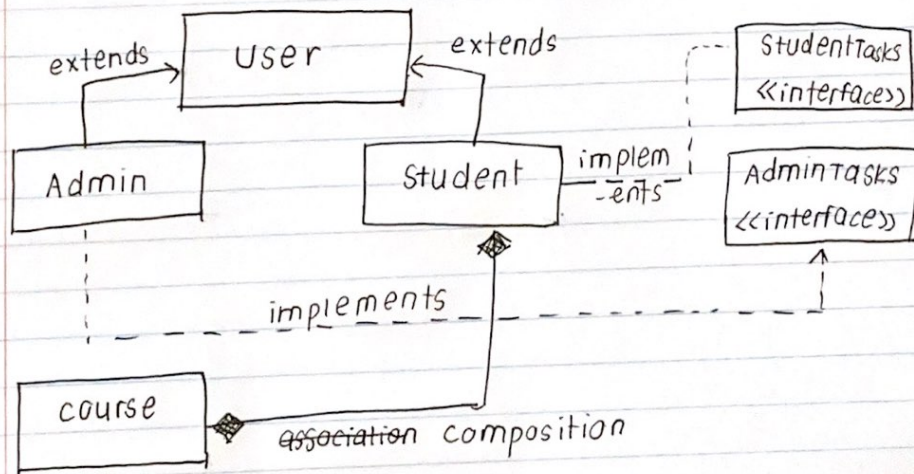 extends
User
extends
StudentTasks
<<interface>>
Admin
Student
implem
-ents
AdminTasks
<<interface>>
implements
course
association composition